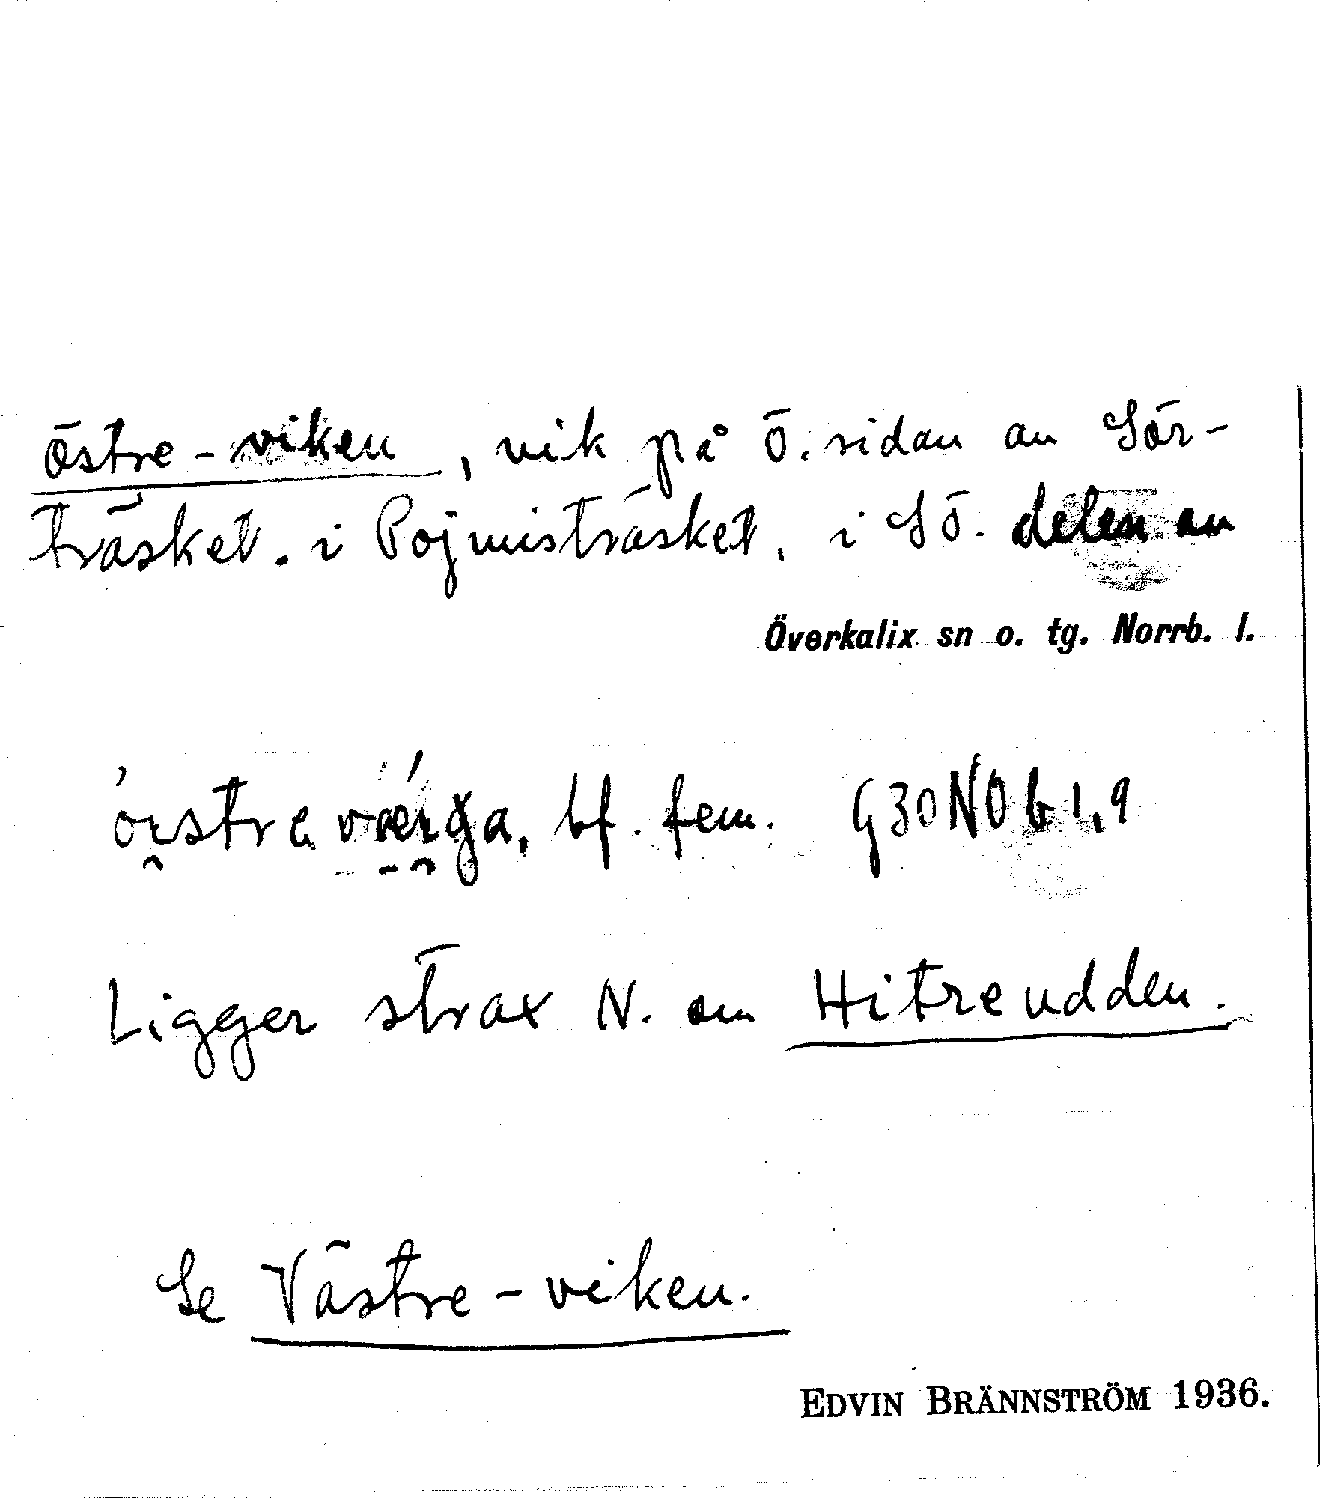 Östre-viken, vik på Ö. sidan av Sör-
träsket. i Pojmisträsket, i SÖ. delen av
Överkalix sn o. tg. Norrb. l.
bf. fem. G30NOb1,9
Ligger strax N. om Hitreudden.
Se Västre-viken.
EDVIN BRÄNNSTRÖM 1936.